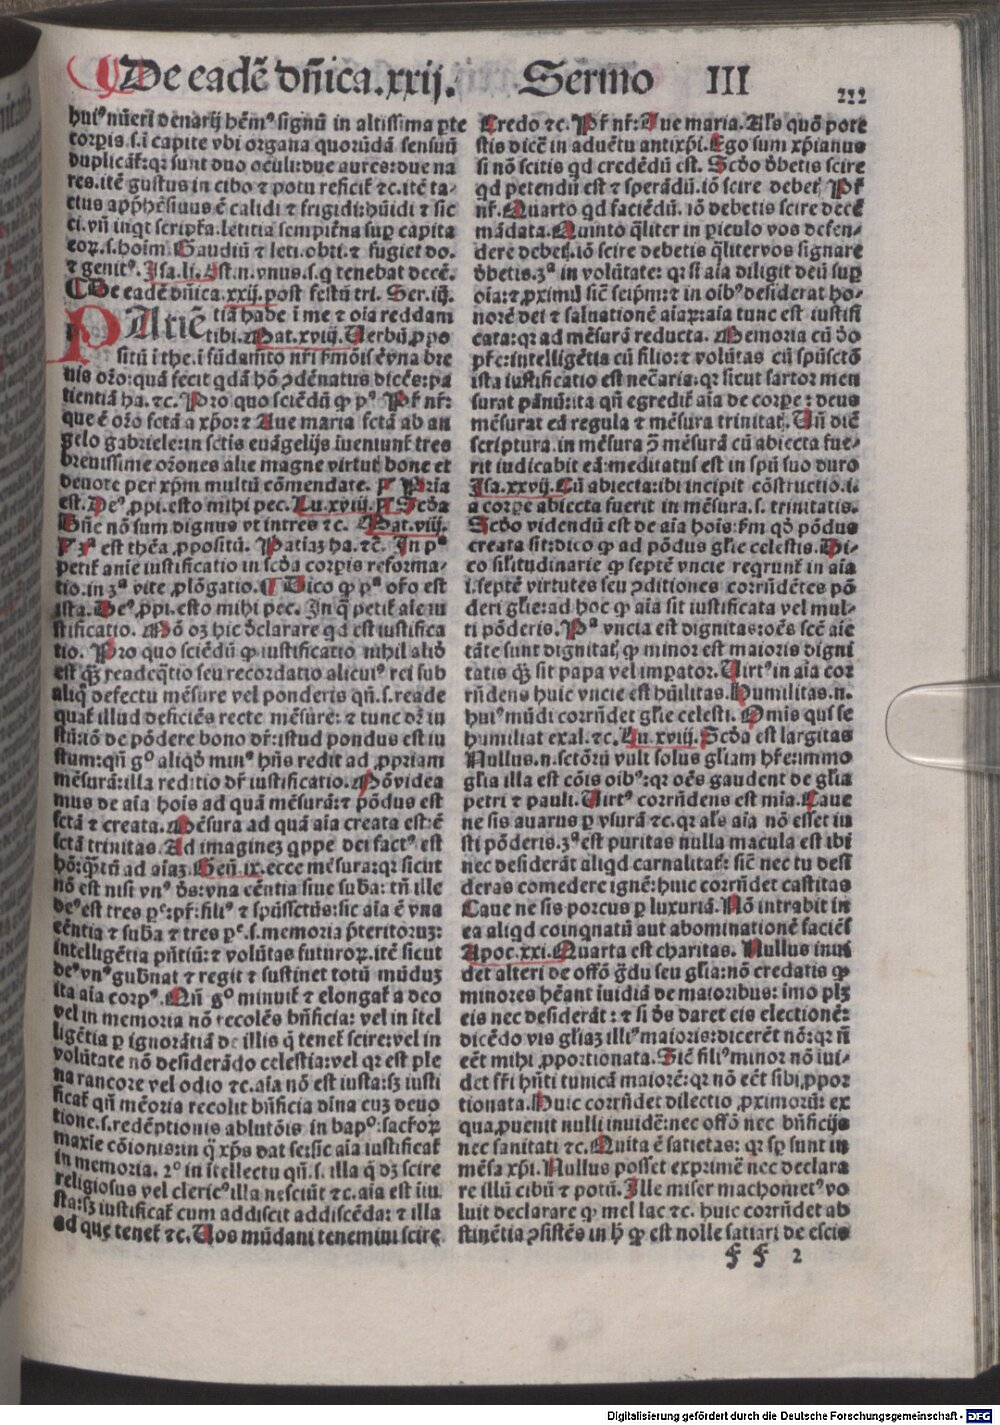 De eadē dn̄ica.xxij. Sermo III
222
huiꝰ nūeri denarij hēmꝰ signū in altissima ꝑte
corꝑis.s.ī capite vbi organa quorūdā sensuū
duplicāt̄: qꝛ sunt duo oculi: due aures: due na
res. itē gustus in cibo ⁊ potu reficit̄ ⁊c. itē ta-
ctus app̄hēsiuus ē calidi ⁊ frigidi: hūidi ⁊ sic
ci. vn̄ inqt scriptꝭa. letitia sempit̄na suꝑ capita
eoꝝ.s. hoīm. Gaudiū ⁊ leti. obti. ⁊ fugiet do.
⁊ genitꝰ. Isa.li. Est.n. vnus.s. q tenebat decē.
De eadē dn̄ica.xxij. post festū tri. Ser. iij.
PAtiē tiā habe ī me ⁊ oīa reddam
tibi. Mat.xviij. Verbū ꝓpo
sitū ī the. ī fūdamēto nr̄i ẜmōis ē vna bre
uis orō: quā fecit qdā hō ꝯdēnatus dicēs: pa
tientiā ha. ⁊c. Pro quo sciēdū ꝙ pꝰ Pr̄ nr̄:
que ē orō fctā a xp̄o: ⁊ Aue maria fctā ab an
gelo gabriele: in sctis euāgelijs īueniunt̄ tres
breuissime orōnes alie magne virtut̄ bone et
deuote per xp̄m multū cōmendate. Pria
est. Deꝰ ꝓpi. esto mihi pec. Lu.xviij. Scd̄a
Dn̄e nō sum dignus vt intres ⁊c. Mat.viij.
3ᵃ est thēa ꝓpositū. Patiaȝ ha. ⁊c̄. In pᵃ
petit̄ anīe iustificatio in scd̄a corꝑis reforma-
tio. in 3ᵃ vite ꝓlōgatio. Dico ꝙ pᵃ orō est
ista. Deꝰ ꝓpi. esto mihi pec. In q̄ petit̄ aīe iu
stificatio. Mō oȝ hic d̄clarare qd est iustifica
tio. Pro quo sciēdū ꝙ iustificatio nihil aliō
est q̄ȝ readeqtio seu recordatio alicuiꝰ rei sub
aliq̄ defectu mēsure vel ponderis qn̄.s. reade
quat̄ illud deficiēs recte mēsure: ⁊ tunc dr̄ iu
stū: iō de pōdere bono dr̄: istud pondus est iu
stum: qn̄ gᵒ aliqd̄ minꝰ hn̄s redit ad ꝓpriam
mēsurā: illa reditio dr̄ iustificatio. Mō videa
mus de aīa hoīs ad quā mēsurā: ⁊ pōdus est
fctā ⁊ creata. Mēsura ad quā aīa creata est: ē
sctā trinitas. Ad imagineȝ qppe dei factꝰ est
hō: q̄ꝫtū ad aīaȝ. Gen̄.ix. ecce mēsura: qꝛ sicut
nō est nisi vnꝰ d̄s: vna eēntia siue sub̄a: tn̄ ille
deꝰ est tres pᵉ: pr̄: filiꝰ ⁊ spūssctūs: sic aīa ē vna
eēntia ⁊ sub̄a ⁊ tres pᵉ.s. memoria p̄teritoruȝ:
intelligētia pn̄tiū: ⁊ volūtas futuroꝝ. itē sicut
deꝰ vnꝰ gub̄nat ⁊ regit ⁊ sustinet totū mūduȝ
ita aīa corpꝰ. Qn̄ gᵒ minuit̄ ⁊ elongat̄ a deo
vel in memoria nō recolēs bn̄ficia: vel in ītel
ligētia ꝑ ignorātiā de illis q̄ tenet̄ scire: vel in
volūtate nō desiderādo celestia: vel qꝛ est ple
na rancore vel odio ⁊c. aīa nō est iusta: sȝ iusti
ficat̄ qn̄ mēoria recolit bn̄ficia dīna cuȝ deuo
tione.s. redēptionis ablutōis in bapᵒ: sacr̄oꝝ
maxīe cōionis: in q̄ xp̄s dat se: sic aīa iustificat̄
in memoria. 2ᵒ in ītellectu qn̄.s. illa q̄ dȝ scire
religiosus vel clericꝰ illa nesciūt ⁊c. aīa est iiu
sta: sȝ iustificat̄ cum addiscit addiscēda: ⁊ illa
ad que tenet̄ ⁊c. Vos mūdani tenemini scire
Credo ⁊c. Pr̄ nr̄: Aue maria. Als quō pote
stis dicē in aduētu antixp̄i. Ego sum xp̄ianus
si nō scitis qd credēdū est. Scd̄o d̄betis scire
qd petendū est ⁊ sperādū. iō scire debet̄ Pr̄
nr̄. Quarto qd faciēdū. iō debetis scire decē
mādata. Quinto q̄liter in ꝑiculo vos defen-
dere debet̄. iō scire debetis q̄liter vos signare
d̄betis. 3ᵃ in volūtate: qꝛ si aīa diligit deū suꝑ
oīa: ⁊ ꝓximū sic̄ seip̄m: ⁊ in oībꝰ desiderat ho-
norē dei ⁊ saluationē aīaꝝ: aīa tunc est iustifi
cata: qꝛ ad mēsurā reducta. Memoria cū d̄o
pr̄e: intelligētia cū filio: ⁊ volūtas cū spūsctō
ista iustificatio est nec̄aria: qꝛ sicut sartor men
surat pānū: ita qn̄ egredit̄ aīa de corpe: deus
mēsurat eā regula ⁊ mēsura trinitat̄. Vn̄ diē
scriptura. in mēsura ꝯ̄ mēsurā cū abiecta fue-
rit iudicabit eā: meditatus est in spū suo duro
Isa.xxvij. Cū abiecta: ibi incipit cōstructio.i.
a corpe abiecta fuerit in mēsura.s. trinitatis.
Scd̄o videndū est de aīa hoīs: ẜm qd̄ pōdus
creata sit: dico ꝙ ad pōdus glīe celestis. Di-
co silitudinarie ꝙ septē vncie regrunt̄ in aīa
i. septē virtutes seu ꝯditiones corrn̄dētes pō
deri glīe: ad hoc ꝙ aīa sit iustificata vel mul-
ti pōderis. Pᵃ vncia est dignitas: oēs scē aīe
tāte sunt dignitat̄, ꝙ minor est maioris digni
tatis q̄ȝ sit papa vel imꝑator. Virtꝰ in aīa cor
rn̄dens huic vncie est hūilitas. Humilitas.n.
huiꝰ mūdi corrn̄det glīe celesti. Omnis qui se
humiliat exal. ⁊c. Lu.xviij. Scd̄a est largitas
Nullus.n. sctōrū vult solus gliam hr̄e: immo
glia illa est cōis oībꝰ: qꝛ oēs gaudent de glia
petri ⁊ pauli. Virtꝰ corrn̄dens est mīa. Caue
ne sis auarus ꝑ vsurā ⁊c. qꝛ als aīa nō esset iu
sti pōderis. 3ᵃ est puritas nulla macula est ibi
nec desiderāt aliqd carnalitat̄: sic̄ nec tu desi
deras comedere ignē: huic corrn̄det castitas
Caue ne sis porcus ꝑ luxuriā. Nō intrabit in
ea aliqd coinqnatū aut abominationē faciēs
Apoc.xxi. Quarta est charitas. Nullus inui
det alteri de offō ḡdu seu glia: nō credatis ꝙ
minores hēant īuidiā de maioribus: imo plȝ
eis nec desiderāt: ⁊ si d̄s daret eis electionē:
dicēdo vis gliaȝ illiꝰ maioris: dicerēt nō: qꝛ n̄
eēt mihi ꝓportionata. Sic̄ filiꝰ minor nō iui-
det fr̄i hn̄ti tunicā maiorē: qꝛ nō eēt sibi ꝓpor
tionata. Huic corrn̄det dilectio ꝓximorū: ex
qua ꝓuenit nulli inuidē: nec offō nec bn̄ficijs
nec sanitati ⁊c. Quīta ē satietas: qꝛ sꝑ sunt in
mēsa xp̄i. Nullus posset exprimē nec declara
re illū cibū ⁊ potū. Ille miser machometꝰ vo
luit declarare ꝙ mel lac ⁊c. huic corrn̄det ab
stinētia ꝯsistēs in h̄ ꝙ est nolle satiari de escis
ff 2
Digitalisierung gefördert durch die Deutsche Forschungsgemeinschaft - DFG